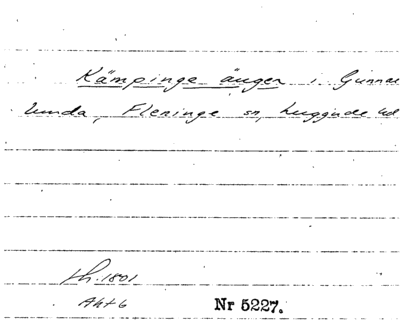 Kämpinge änger i Gunnar
lunda, Fleninge sn, Luggude hd
Lh. 1801
Akt 6
Nr 5227.